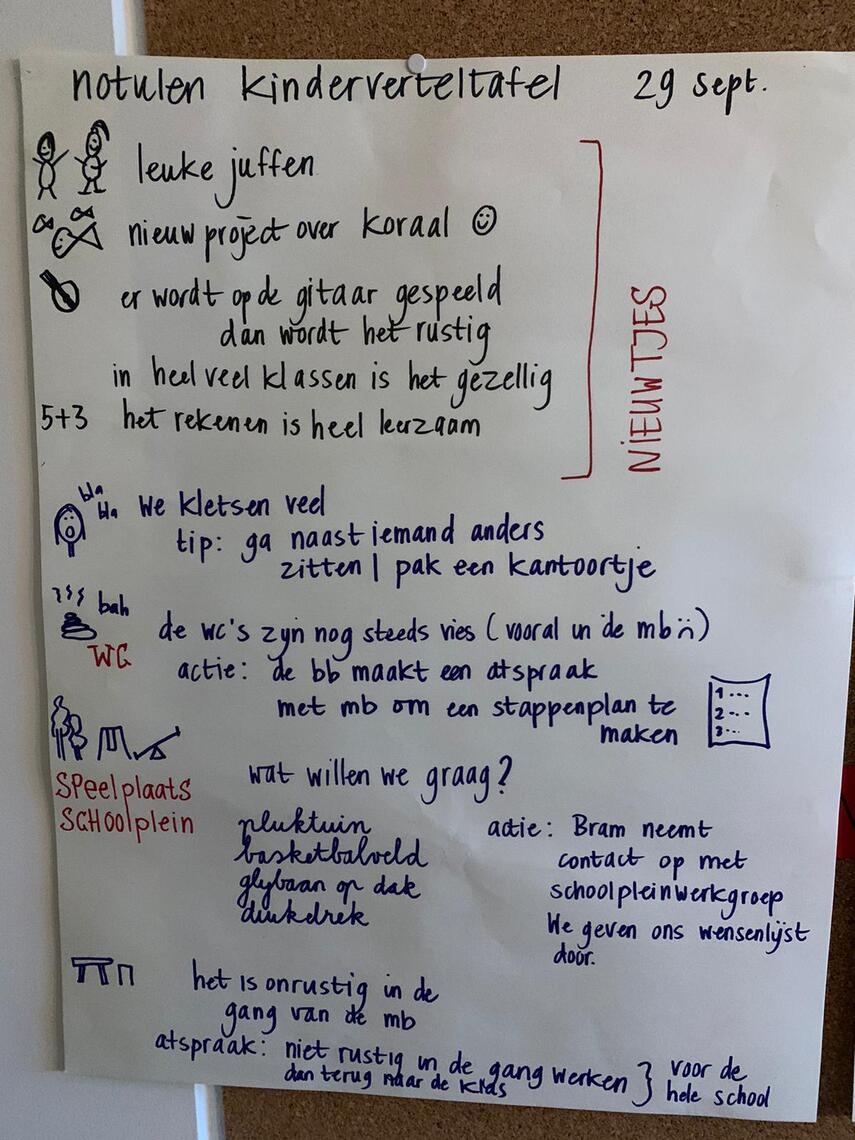 notulen kinderverteltafel 29 sept.
leuke juffen
nieuw project over koraal
er wordt op de gitaar gespeeld
dan wordt het rustig
in heel veel klassen is het gezellig
5+3 het rekenen is heel leerzaam
NIEUWTJES
bla
bla
we kletsen veel
tip: ga naast iemand anders
zitten | pak een kantoortje
bah
de wc's zijn nog steeds vies (vooral in de mb)
WC
actie: de bb maakt een afspraak
met mb om een stappenplan te
maken
1 ...
2 ...
3 ...
Speelplaats
SCHoolplein
wat willen we graag?
pluktuin
basketbalveld
glijbaan op dak
duikdrek
actie: Bram neemt
contact op met
schoolpleinwerkgroep
We geven ons wensenlijst
door.
het is onrustig in de
gang van de mb
afspraak: niet rustig in de gang werken } voor de
dan terug naar de klas
hele school